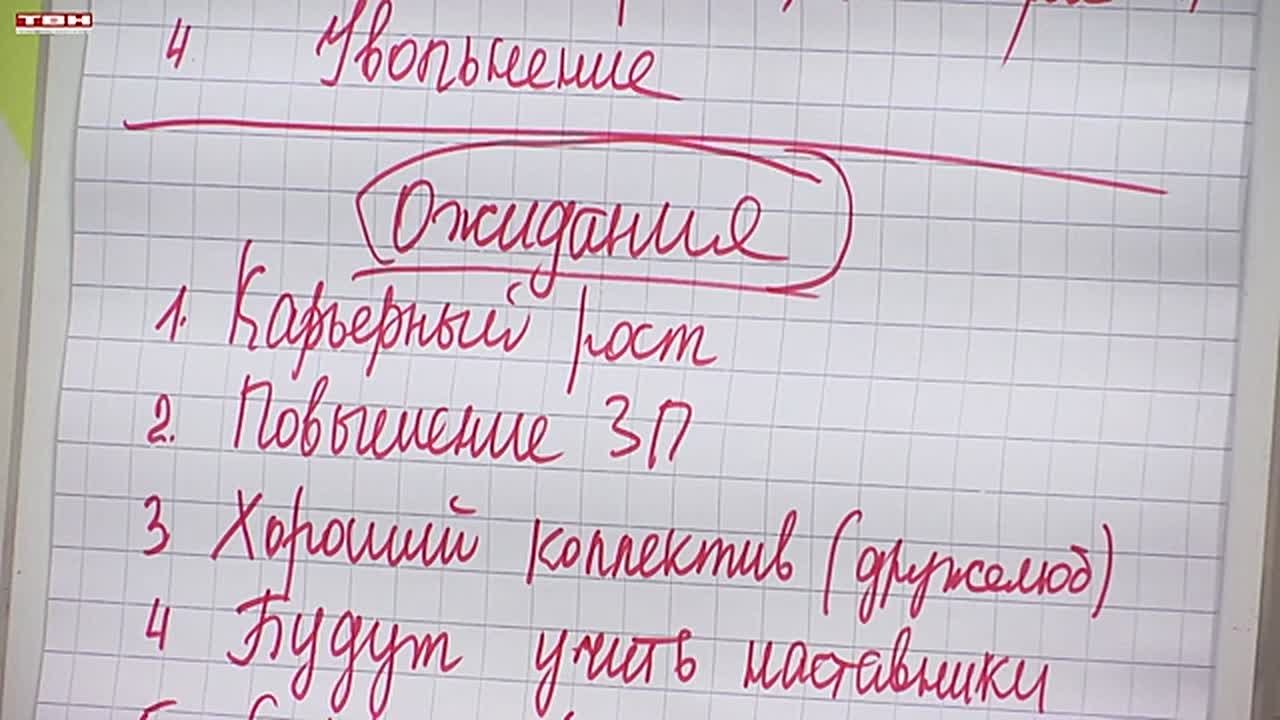 ТОН
4 Увольнение
Ожидания
1. Карьерный рост
2. Повышение ЗП
3 Хороший коллектив (дружелюб)
4 Будут учить наставники